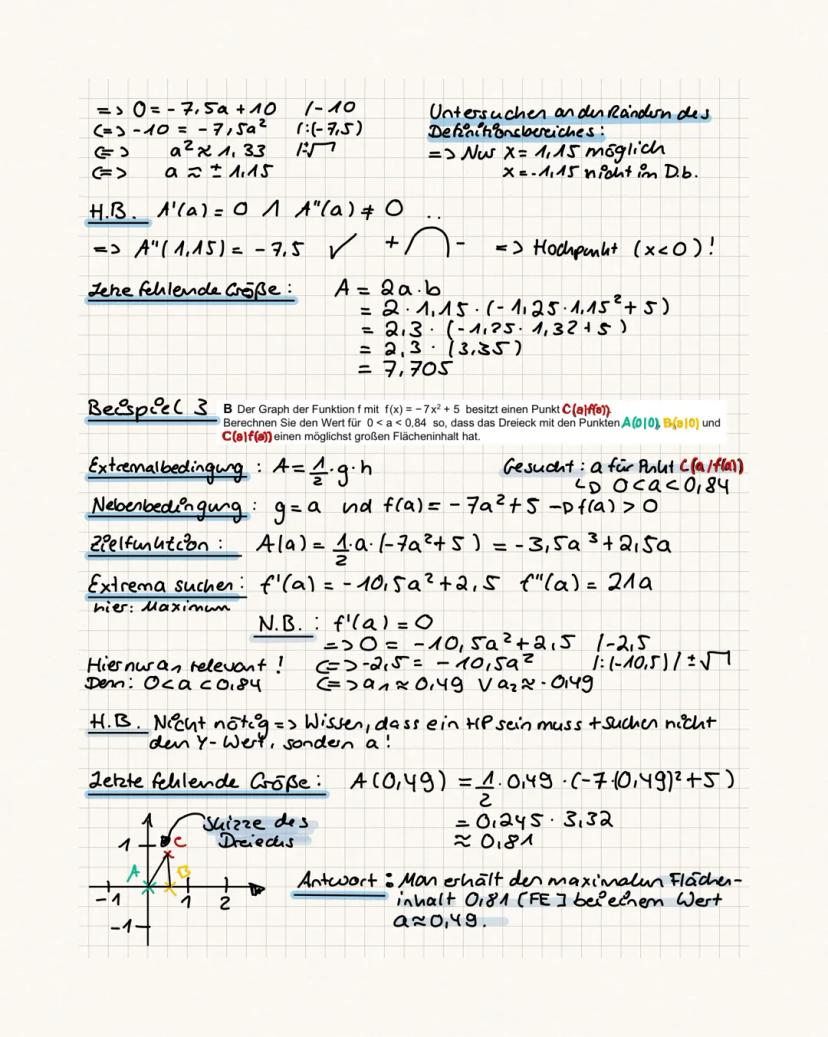 => 0 = - 7,5a + 10 /-10
<=> -10 = - 7,5a² /:(-7,5)
<=> a² ≈ 1,33 /±√
<=> a ≈ ± 1,15
Untersuchen an den Rändern des
Definitionsbereiches:
=> Nur x = 1,15 möglich
x = -1,15 nicht im D.b.
H.B. A'(a) = 0 ∧ A''(a) ≠ 0
=> A''(1,15) = - 7,5 ✓ + ⌒ - => Hochpunkt (x<0)!
Letzte fehlende Größe: A = 2a·b
= 2·1,15·(-1,25·1,15²+5)
= 2,3·(-1,25·1,32+5)
= 2,3·(3,35)
= 7,705
Beispiel 3 B Der Graph der Funktion f mit f(x) = −7x² + 5 besitzt einen Punkt C(a|f(a)).
Berechnen Sie den Wert für 0 < a < 0,84 so, dass das Dreieck mit den Punkten A(0|0), B(a|0) und
C(a|f(a)) einen möglichst großen Flächeninhalt hat.
Extremalbedingung: A = 1/2·g·h Gesucht: a für Pnkt C(a/f(a))
↳ 0<a<0,84
Nebenbedingung: g=a und f(a) = -7a²+5 → f(a) > 0
Zielfunktion: A(a) = 1/2·a·(-7a²+5) = -3,5a³+2,5a
Extrema suchen: f'(a) = -10,5a²+2,5 f''(a) = 21a
hier: Maximum
N.B.: f'(a) = 0
=> 0 = -10,5a²+2,5 /-2,5
Hier nur a₁ relevant! <=> -2,5 = -10,5a² /:(-10,5) / ±√
Denn: 0<a<0,84 <=> a₁ ≈ 0,49 ∨ a₂ ≈ -0,49
H.B. Nicht nötig => Wissen, dass ein HP sein muss + suchen nicht
den Y-Wert, sondern a!
Letzte fehlende Größe: A(0,49) = 1/2·0,49·(-7·(0,49)²+5)
= 0,245·3,32
≈ 0,81
Skizze des
Dreiecks
1
1
C
A
B
-1 1 2
-1
Antwort: Man erhält den maximalen Flächen-
inhalt 0,81 [FE] bei einem Wert
a≈0,49.